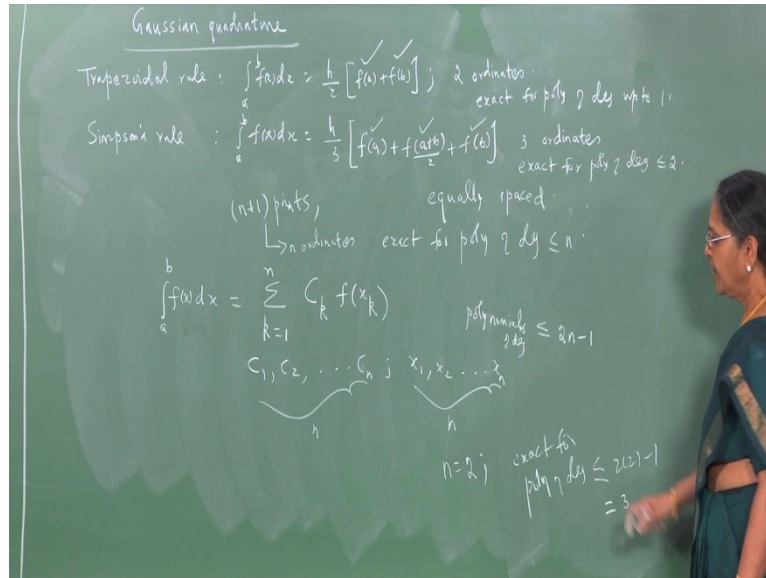 Gaussian quadrature
Trapezoidal rule : ∫_a^b f(x)dx = h/2 [f(a) + f(b)] ; 2 ordinates
exact for poly of deg upto 1.
Simpson's rule : ∫_a^b f(x)dx = h/3 [f(a) + f(a+b)/2 + f(b)] 3 ordinates
exact for poly of deg ≤ 2.
(n+1) points, equally spaced
↳ n ordinates exact for poly of deg ≤ n
∫_a^b f(x)dx = Σ_{k=1}^n C_k f(x_k)
polynomials of deg ≤ 2n-1
C_1, C_2, ... C_n ; x_1, x_2 ... x_n
n n
n=2; exact for
poly of deg ≤ 2(2)-1
= 3